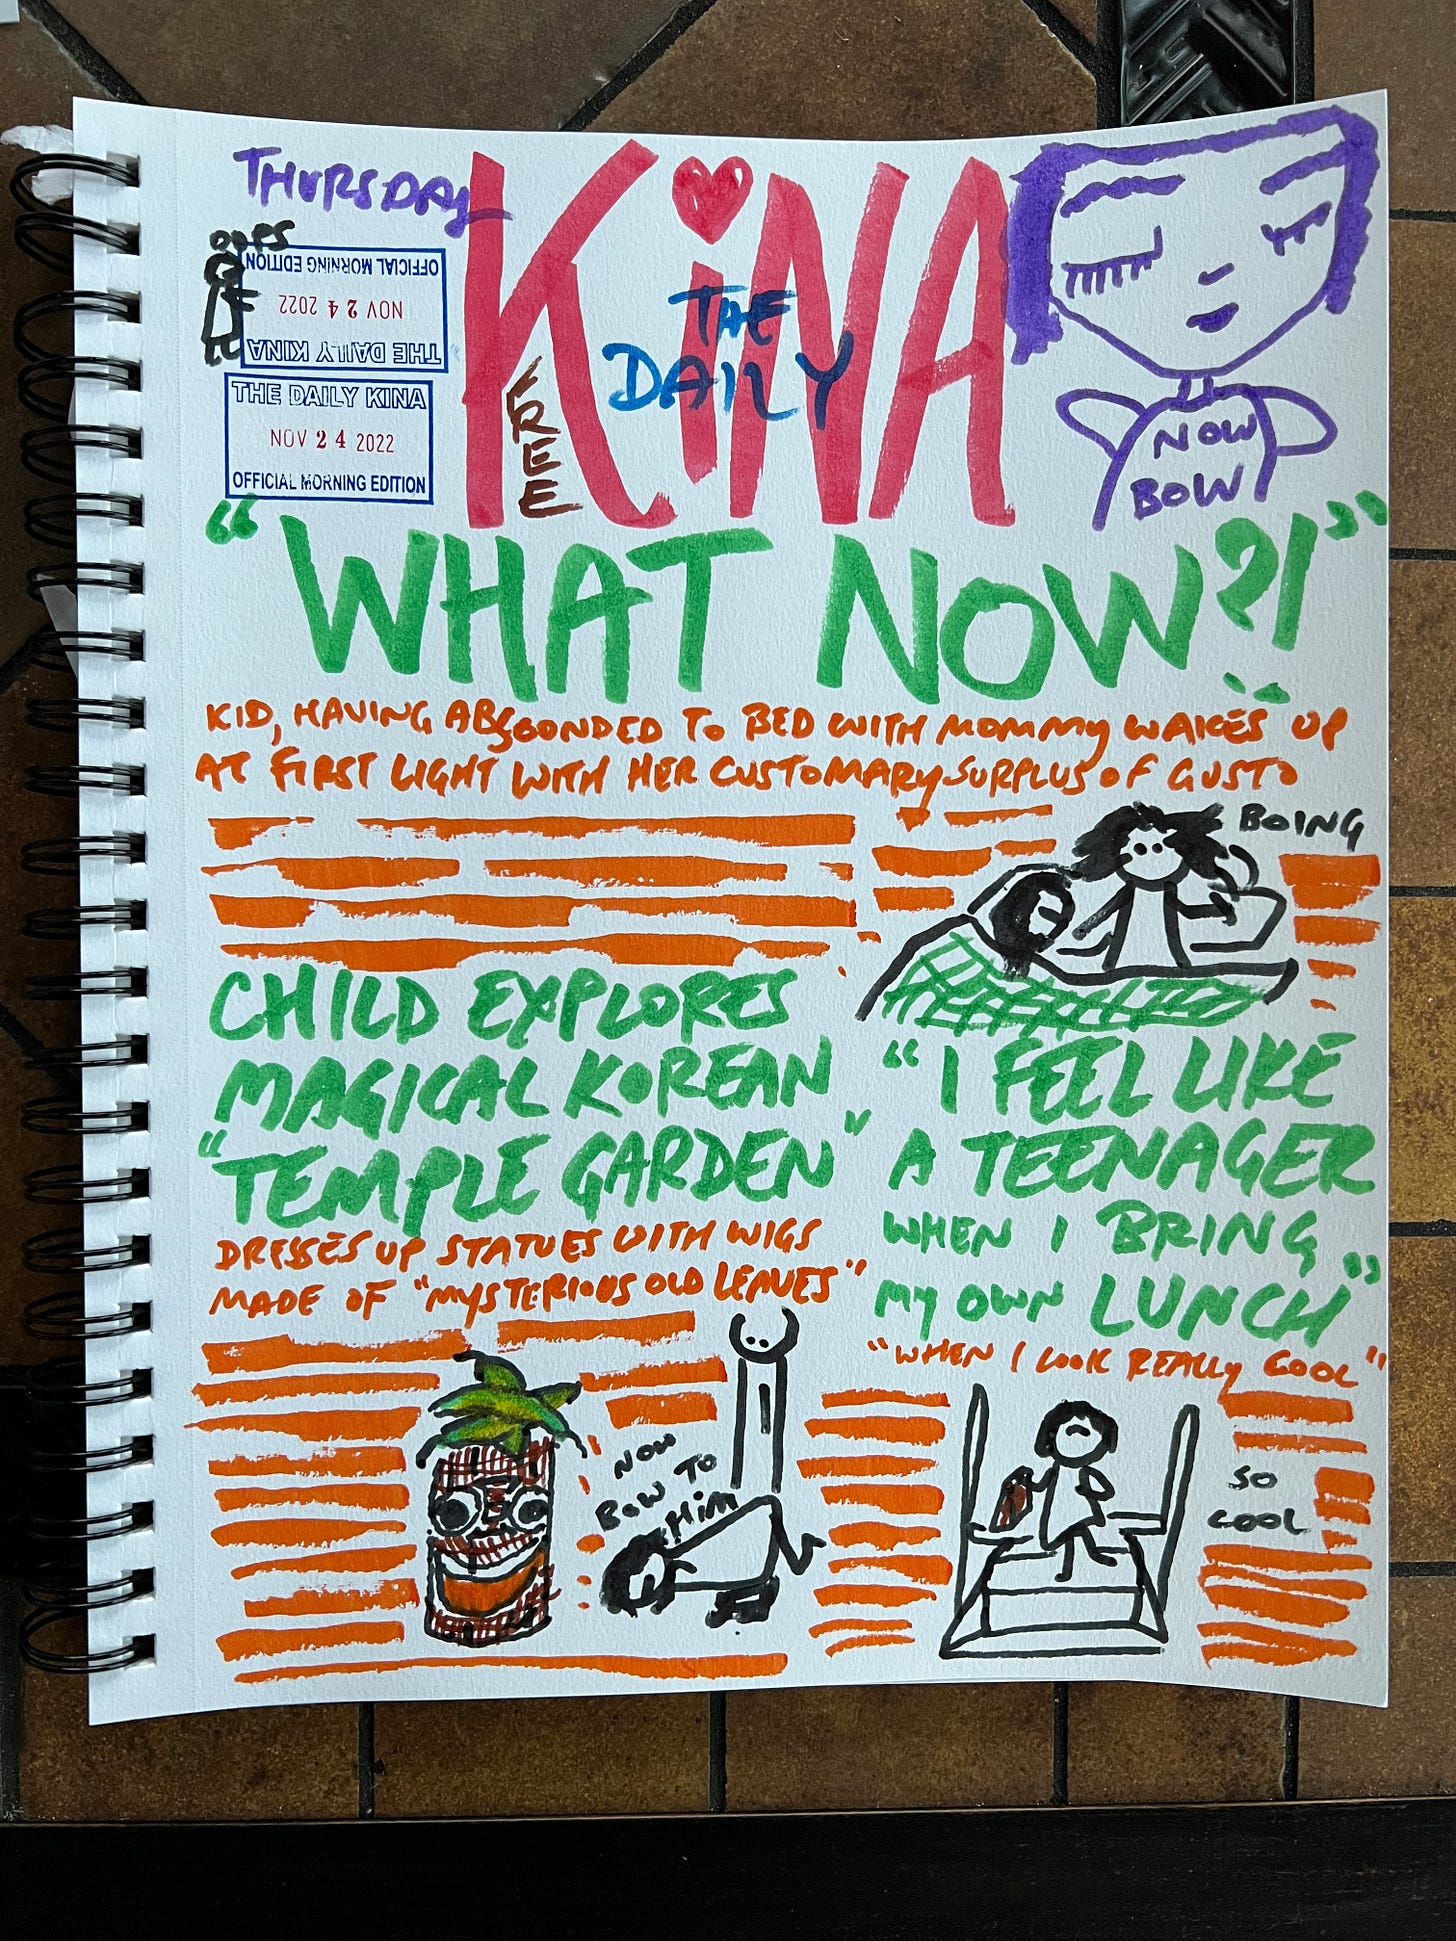 THURSDAY
OOPS
THE DAILY KINA
NOV 24 2022
OFFICIAL MORNING EDITION
THE DAILY KINA
NOV 24 2022
OFFICIAL MORNING EDITION
KiNA
THE
DAILY
FREE
NOW
BOW
"WHAT NOW?!"
KID, HAVING ABSCONDED TO BED WITH MOMMY WAKES UP
AT FIRST LIGHT WITH HER CUSTOMARY SURPLUS OF GUSTO
BOING
CHILD EXPLORES
MAGICAL KOREAN
"TEMPLE GARDEN"
DRESSES UP STATUES WITH WIGS
MADE OF "MYSTERIOUS OLD LEAVES"
NOW
BOW TO
HIM
"I FEEL LIKE
A TEENAGER
WHEN I BRING
MY OWN LUNCH"
"WHEN I LOOK REALLY COOL"
SO
COOL